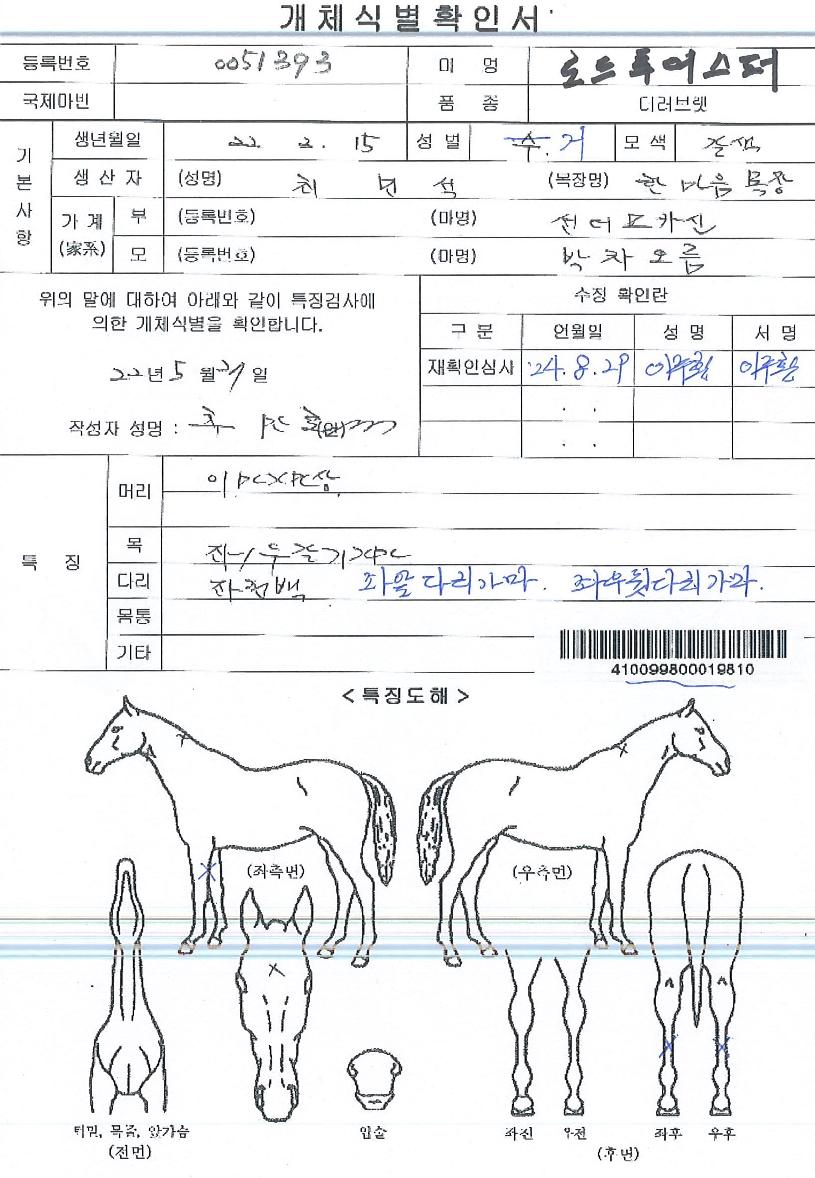 개체식별확인서
등록번호 0051393 마 명 로드투에스터
국제마번 품 종 더러브렛
기본사항
생년월일 22. 2. 15 성 별 수. 거 모 색 갈색
생 산 자 (성명) 최 석 (목장명) 한 마음 목장
가 계 (家系) 부 (등록번호) (마명) 선더모카신
모 (등록번호) (마명) 박차오름
위의 말에 대하여 아래와 같이 특징검사에
의한 개체식별을 확인합니다.
22년 5 월 31 일
작성자 성명 :
수정 확인란
구 분 연월일 성 명 서 명
재확인심사 '24. 8. 29
. .
. .
특 징
머리
목 좌/우
다리 좌앞다리가마. 좌우뒷다리가마.
몸통
기타
410099800019810
< 특징도해 >
(좌측면) (우측면)
턱밑, 목줄, 앞가슴
(전면)
입술
좌전 우전 좌후 우후
(후면)